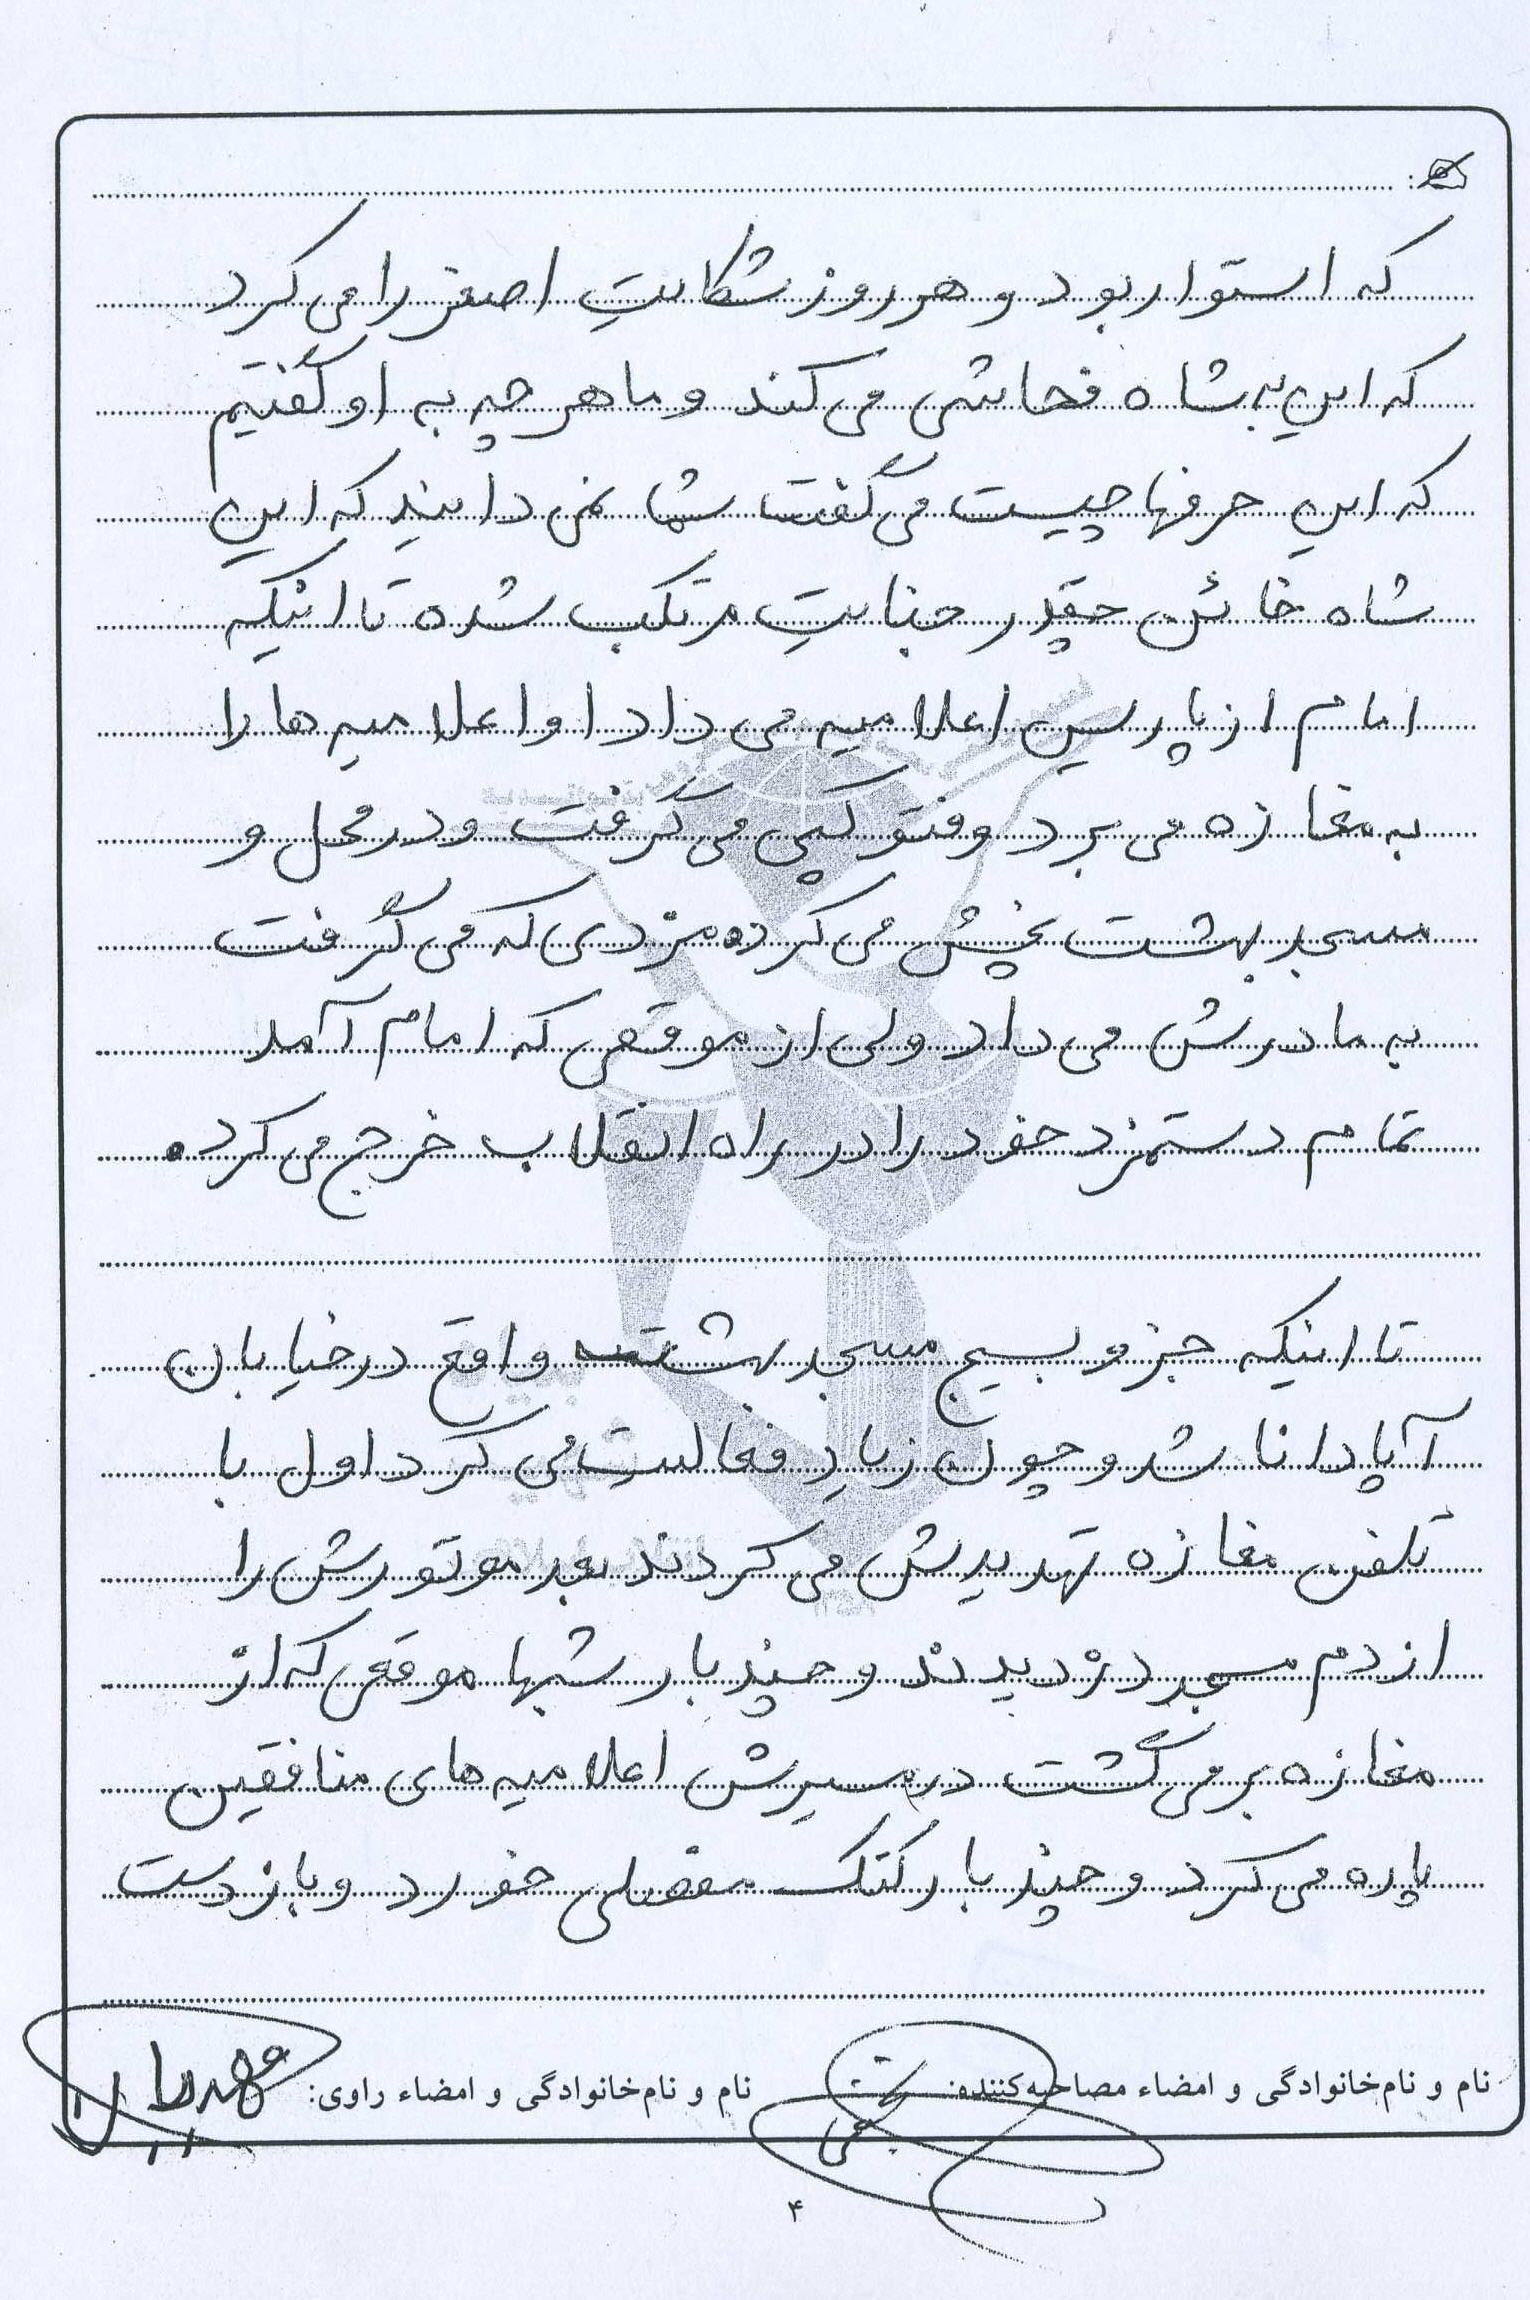 که استوار بود و هر روز شکایت اصغر را می کرد
که این به شاه فحاشی می کند و ما هر چه به او گفتیم
که این حرفها چیست می گفت شما نمی دانید که این
شاه خائن چقدر جنایت مرتکب شده تا اینکه
امام از پاریس اعلامیه می داد او اعلامیه ها را
به مغازه می برد و فتوکپی می گرفت و در محل و
مسجد بهشت پخش می کرد، مزدی که می گرفت
به مادرش می داد ولی از موقعی که امام آمد
تمام دستمزد خود را در راه انقلاب خرج می کرد.
تا اینکه جزو بسیج مسجد بهشت واقع در خیابان
آپادانا شد و چون زیاد فعالیت می کرد اول با
تلفن مغازه تهدیدش می کردند بعد موتورش را
از دم مسجد دزدیدند و چند بار شبها موقعی که از
مغازه برمی گشت در مسیرش اعلامیه های منافقین
پاره می کرد و چند بار کتک مفصلی خورد و باز دست
نام و نام‌خانوادگی و امضاء مصاحبه‌کننده: نام و نام‌خانوادگی و امضاء راوی:
۴